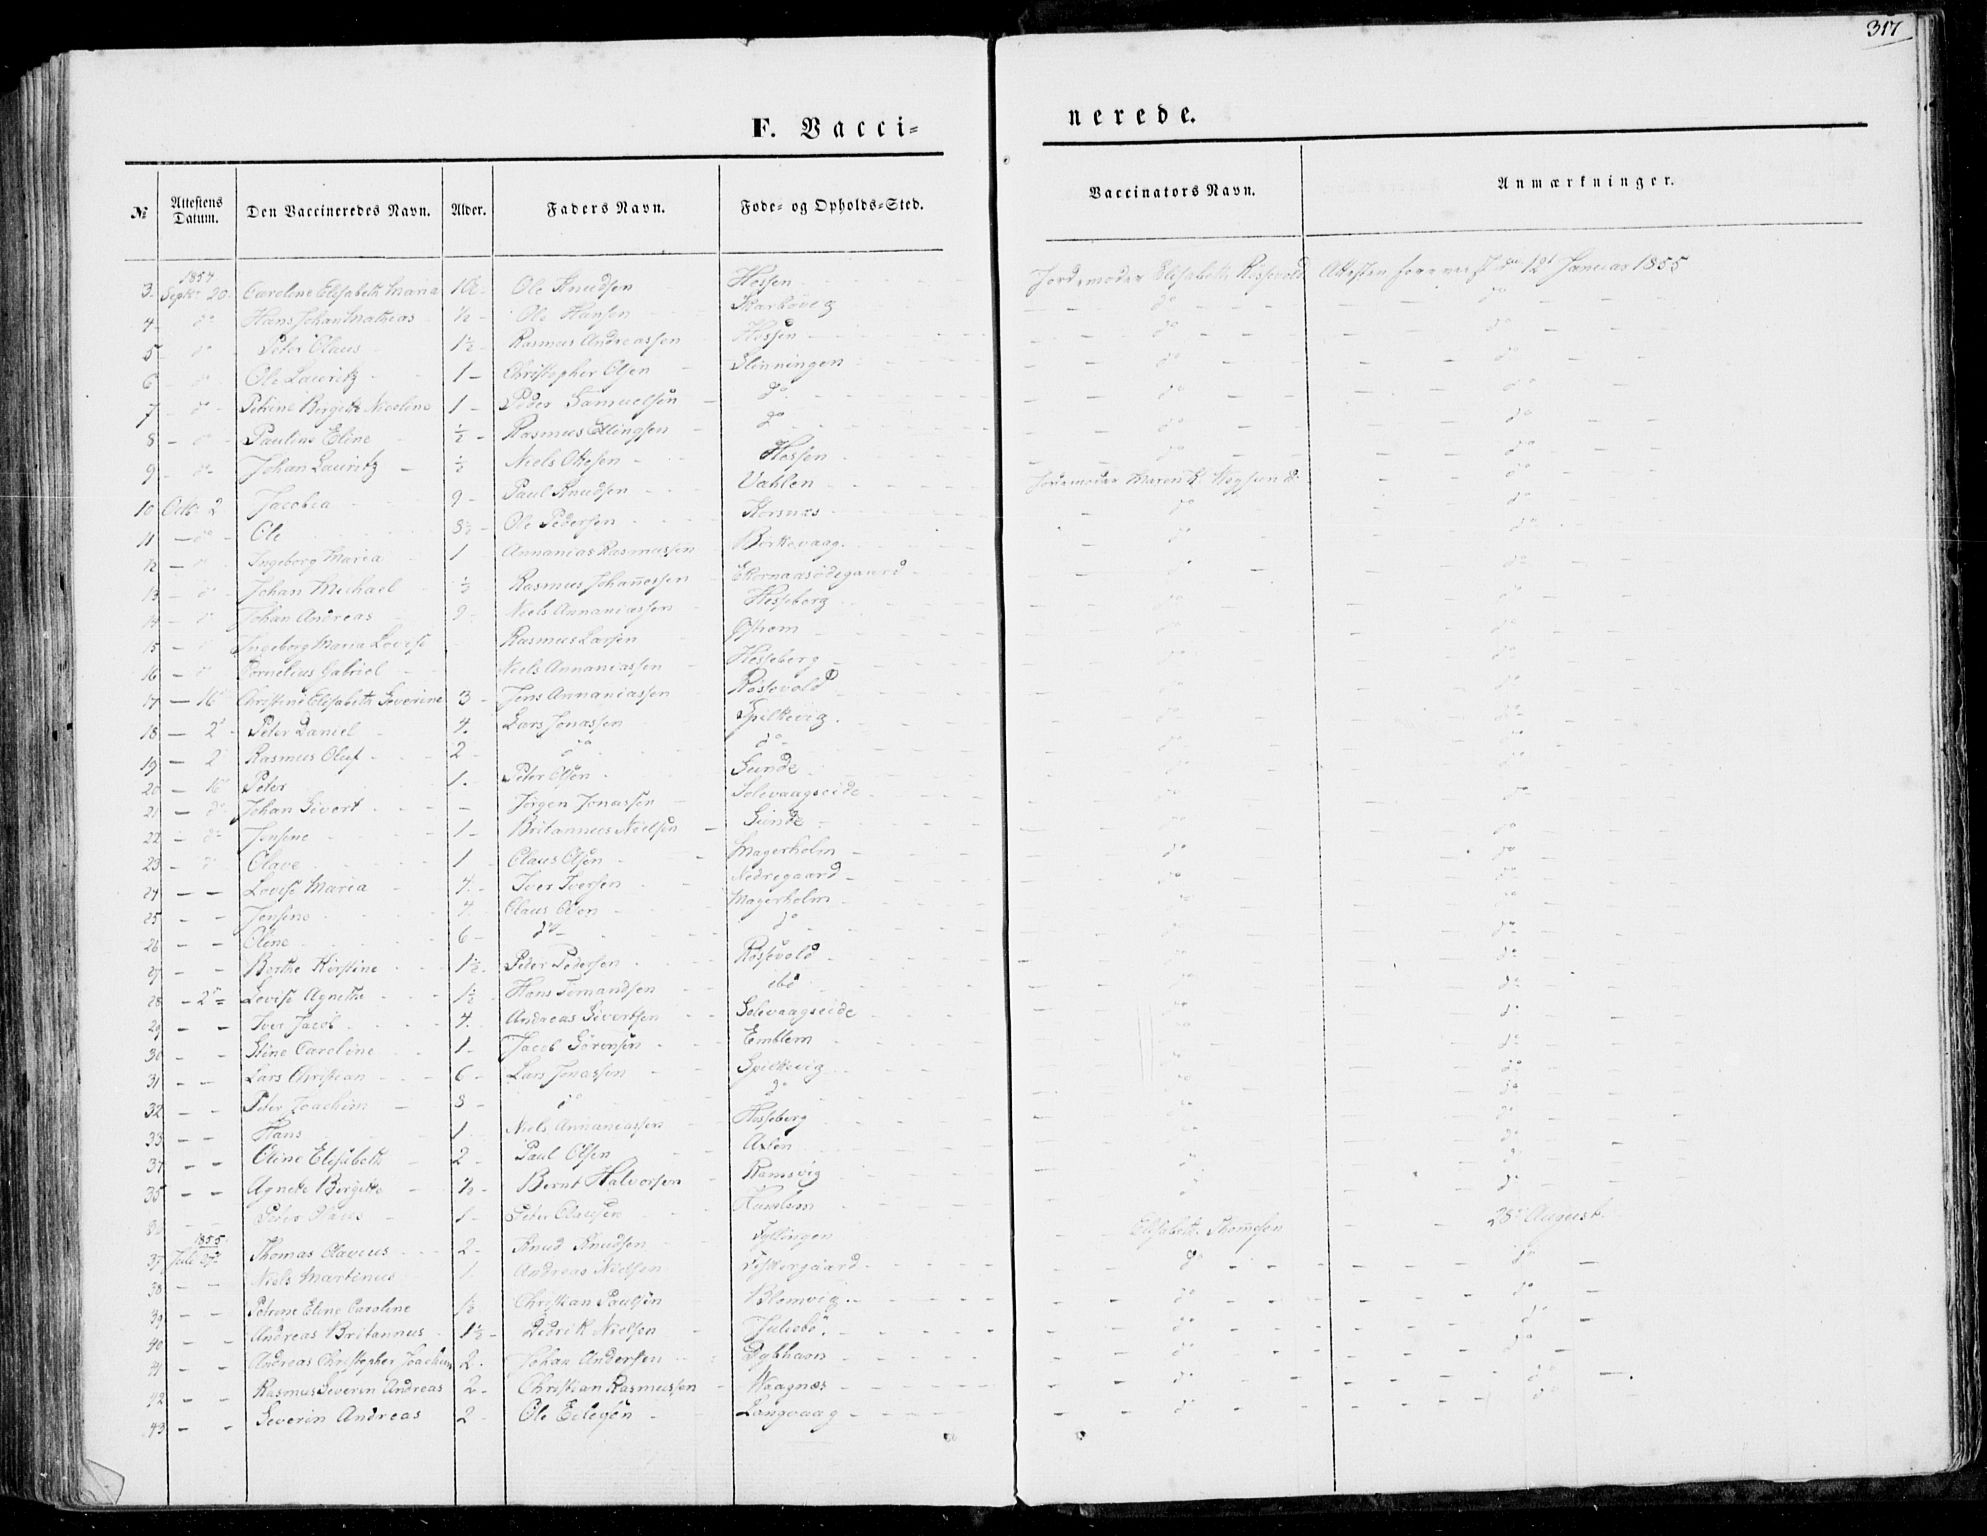 317
F. Vacci-
nerede.
№ Attestens Datum. Den Vaccineredes Navn. Alder. Faders Navn. Føde- og Opholds-Sted. Vaccinators Navn. Anmærkninger.
1854
3 Septbr 20 Caroline Elisabeth Maria Ole Knudsen Hessen Jordemoder Elisabeth Røssevold Attesten Januar 1855
4 do Hans Johan Mathias ½ Ole Hansen Skarbøvig do do
5 do Peter Olaus 1½ Rasmus Andreassen Hessen do do
6 do Ole Lauritz 1 Christopher Olsen Slinningen do do
7 do Petrine Bergitte Nicoline 1 Peder Samuelsen do do do
8 do Pauline Eline ½ Rasmus Ellingsen do do do
9 do Johan Lauritz ½ Niels Olsen Hessen do
10 Octb 2 Jacobia 9 Paul Knudsen Vahlen Jordemoder Maren K. do
11 do Ole Ole Pedersen do do
12 Ingeborg Maria 1 Annanias Rasmussen do do
13 do Johan Michael ½ Rasmus Johannessen do do
14 do Johan Andreas 2 Niels Annaniassen Hesseberg do do
15 Ingeborg Maria Lovise Rasmus Larsen do do
16 do Cornelius Gabriel Niels Annaniassen Hesseberg do do
17 16 Christine Elisabeth Severine 3 Jens Annaniassen Røssevold do do
18 2 Peter Daniel 4 Lars Jonassen Spilkevig do do
19 2 Rasmus Oluf 2 do do do do
20 16 Peter 1 Peter Olsen Gunde do do
21 do Johan Sivert Jørgen Jonassen Solevaagseide do do
22 do Jensine 1 Britannus Nielsen Sunde do do
23 do Olave 1 Claus Olsen Magerholm do do
24 Lovise Maria 4 Iver Iversen Nedregaard do do
25 Jensine 4 Claus Olsen Magerholm do do
26 Oline 6 do do do do
27 Berthe Kirstine 1½ Peter Pedersen Røssevold do do
28 2 Lovise Agnethe 1½ Hans ibd do do
29 Iver Jacob 4 Andreas Sivertsen Solevaagseide do do
30 Stine Caroline 1 Jacob Sørensen Emblem do do
31 Lars Christian 6 Lars Jonassen Spilkevig do do
32 Peter Joachim 3 do do do do
33 Hans 1 Niels Annaniassen Hesseberg do do
34 Oline Elisabeth 2 Paul Olsen Axlen do do
35 Agnete Bergitte ½ Bernt Halvorsen Ramsvig do do
Peter Olaus 1 Peter Clausen do do
1855
37 Juli 27 Thomas Olavius 2 Knud Knudsen Elisabeth Thomsen 28 August
38 Niels Martinus 1 Andreas Nielsen do do
39 Petrine Eline Caroline 1½ Christian Paulsen Blomvig do do
40 Andreas Britannus 1½ Didrik Nielsen Juliebø do do
41 Andreas Christopher Joachim 2 Johan Andersen Dybhavn do do
42 Rasmus Severin Andreas 2 Christian Rasmussen Waagnæs do do
43 Severin Andreas 2 Ole Langvaag do do